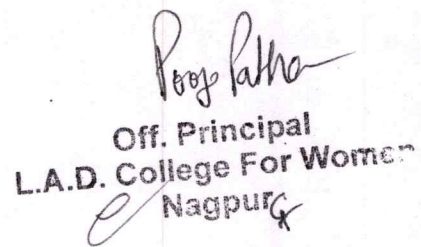 Pooja Pathak
Off. Principal
L.A.D. College For Women
Nagpur